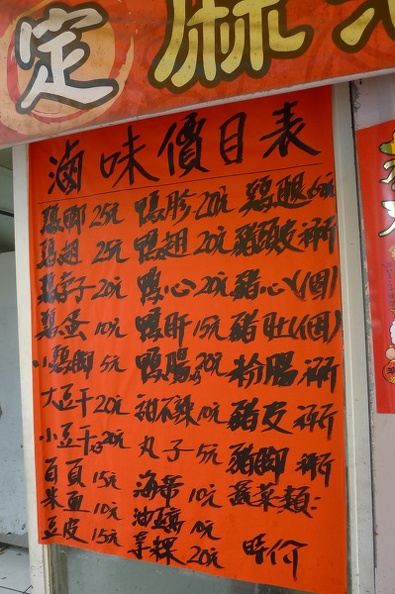 定 麻
滷味價目表
雞腳 25元 鴨胗 20元 雞腿 60元
雞翅 25元 鴨翅 20元 豬頭皮
雞脖子 20元 鴨心 20元 豬心(個)
雞蛋 10元 鴨肝 15元 豬肚(個)
小雞腳 5元 鴨腸 20元 粉腸
大豆干 20元 甜不辣 10元 豬皮
小豆干 20元 丸子 5元 豬腳
百頁 15元 海帶 10元 蔬菜類:
米血 10元 油豆腐 10元
豆皮 15元 芋粿 20元 時價